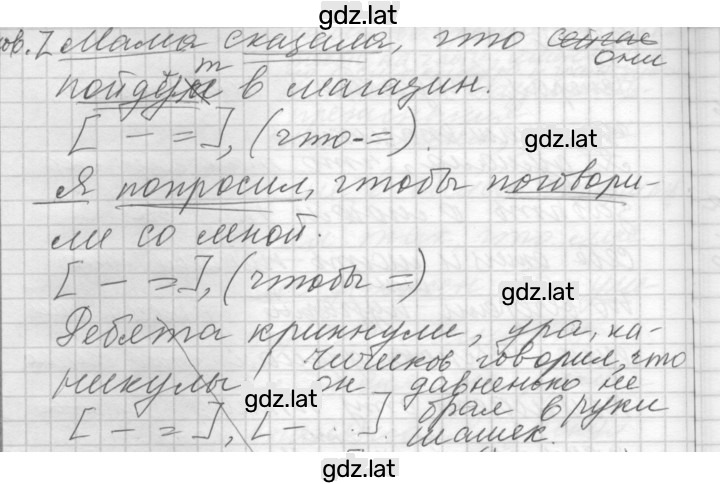 gdz.lat
Мама сказала, что они
пойдут в магазин.
[ – = ], (что – = ).
gdz.lat
Я попросил, чтобы поговори-
ли со мной.
[ – = ], (чтобы = )
gdz.lat
Ребята крикнули, ура, ка-
никулы
Чичиков говорил, что
давненько не
брал в руки
шашек.
gdz.lat
[ – = ], [ – . . . ].
gdz.lat